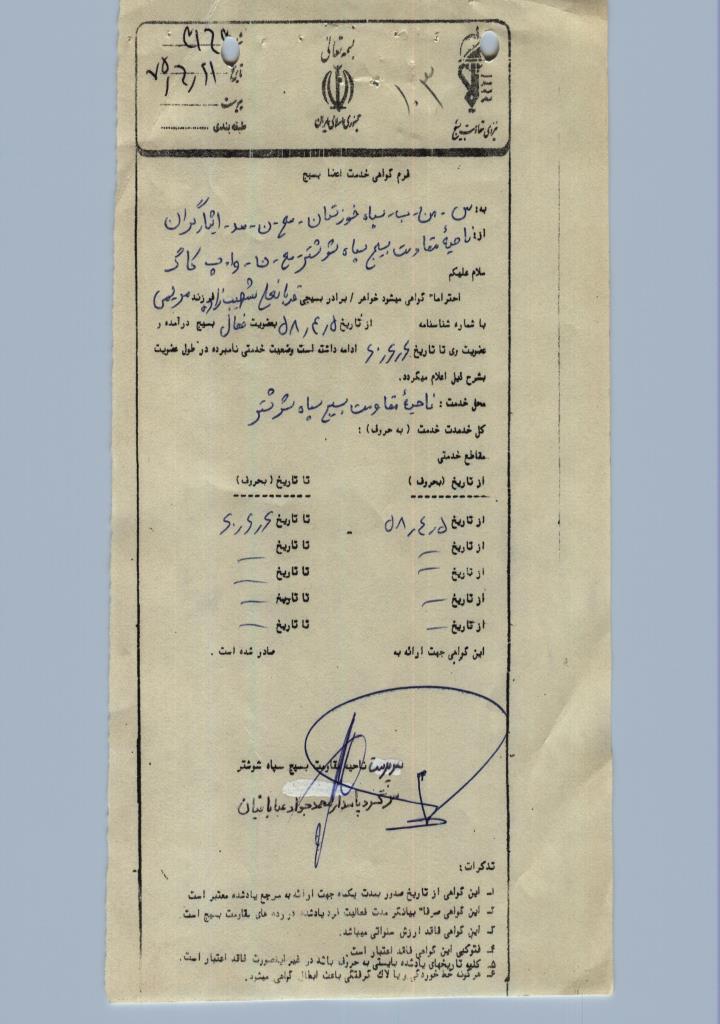 بسمه تعالی
جمهوری اسلامی ایران
نیروی مقاومت بسیج
۱۰۳
تاریخ ۷۵٫۶٫۲۱
پیوست
طبقه بندی
فرم گواهی خدمت اعضا بسیج
به: س - ن - ب - سپاه خوزستان - م ع - ن - ایثارگران
از: ناحیهٔ مقاومت بسیج سپاه شوشتر - م ع - ن - و ا - پ کارگر
سلام علیکم
احتراما" گواهی میشود خواهر / برادر بسیجی قربانعلی فرزند
با شماره شناسنامه از تاریخ ۵۸٫۴٫۵ بعضویت فعال بسیج درآمده و
عضویت وی تا تاریخ ۶۰٫۶٫۶ ادامه داشته است وضعیت خدمتی نامبرده در طول عضویت
بشرح ذیل اعلام میگردد.
محل خدمت : ناحیهٔ مقاومت بسیج سپاه شوشتر
کل خدمدت خدمت ( به حروف ) :
مقاطع خدمتی
از تاریخ (بحروف ) تا تاریخ ( بحروف )
از تاریخ ۵۸٫۴٫۵ تا تاریخ ۶۰٫۶٫۶
از تاریخ — تا تاریخ —
از تاریخ — تا تاریخ —
از تاریخ — تا تاریخ —
از تاریخ — تا تاریخ —
این گواهی جهت ارائه به صادر شده است .
سرپرست ناحیه مقاومت بسیج سپاه شوشتر
سرگرد پاسدار محمدجواد عبابافیان
تذکرات :
۱- این گواهی از تاریخ صدور بمدت یکماه جهت ارائه به مرجع یادشده معتبر است
۲- این گواهی صرفا" بیانگر مدت فعالیت فرد یادشده در رده های مقاومت بسیج است.
۳- این گواهی فاقد ارزش سنواتی میباشد.
۴- فتوکپی این گواهی فاقد اعتبار است.
۵- کلیه تاریخهای یادشده بایستی به حروف باشد در غیر اینصورت فاقد اعتبار است.
۶- هرگونه خط خوردگی و یا لاک گرفتگی باعث ابطال گواهی میشود.